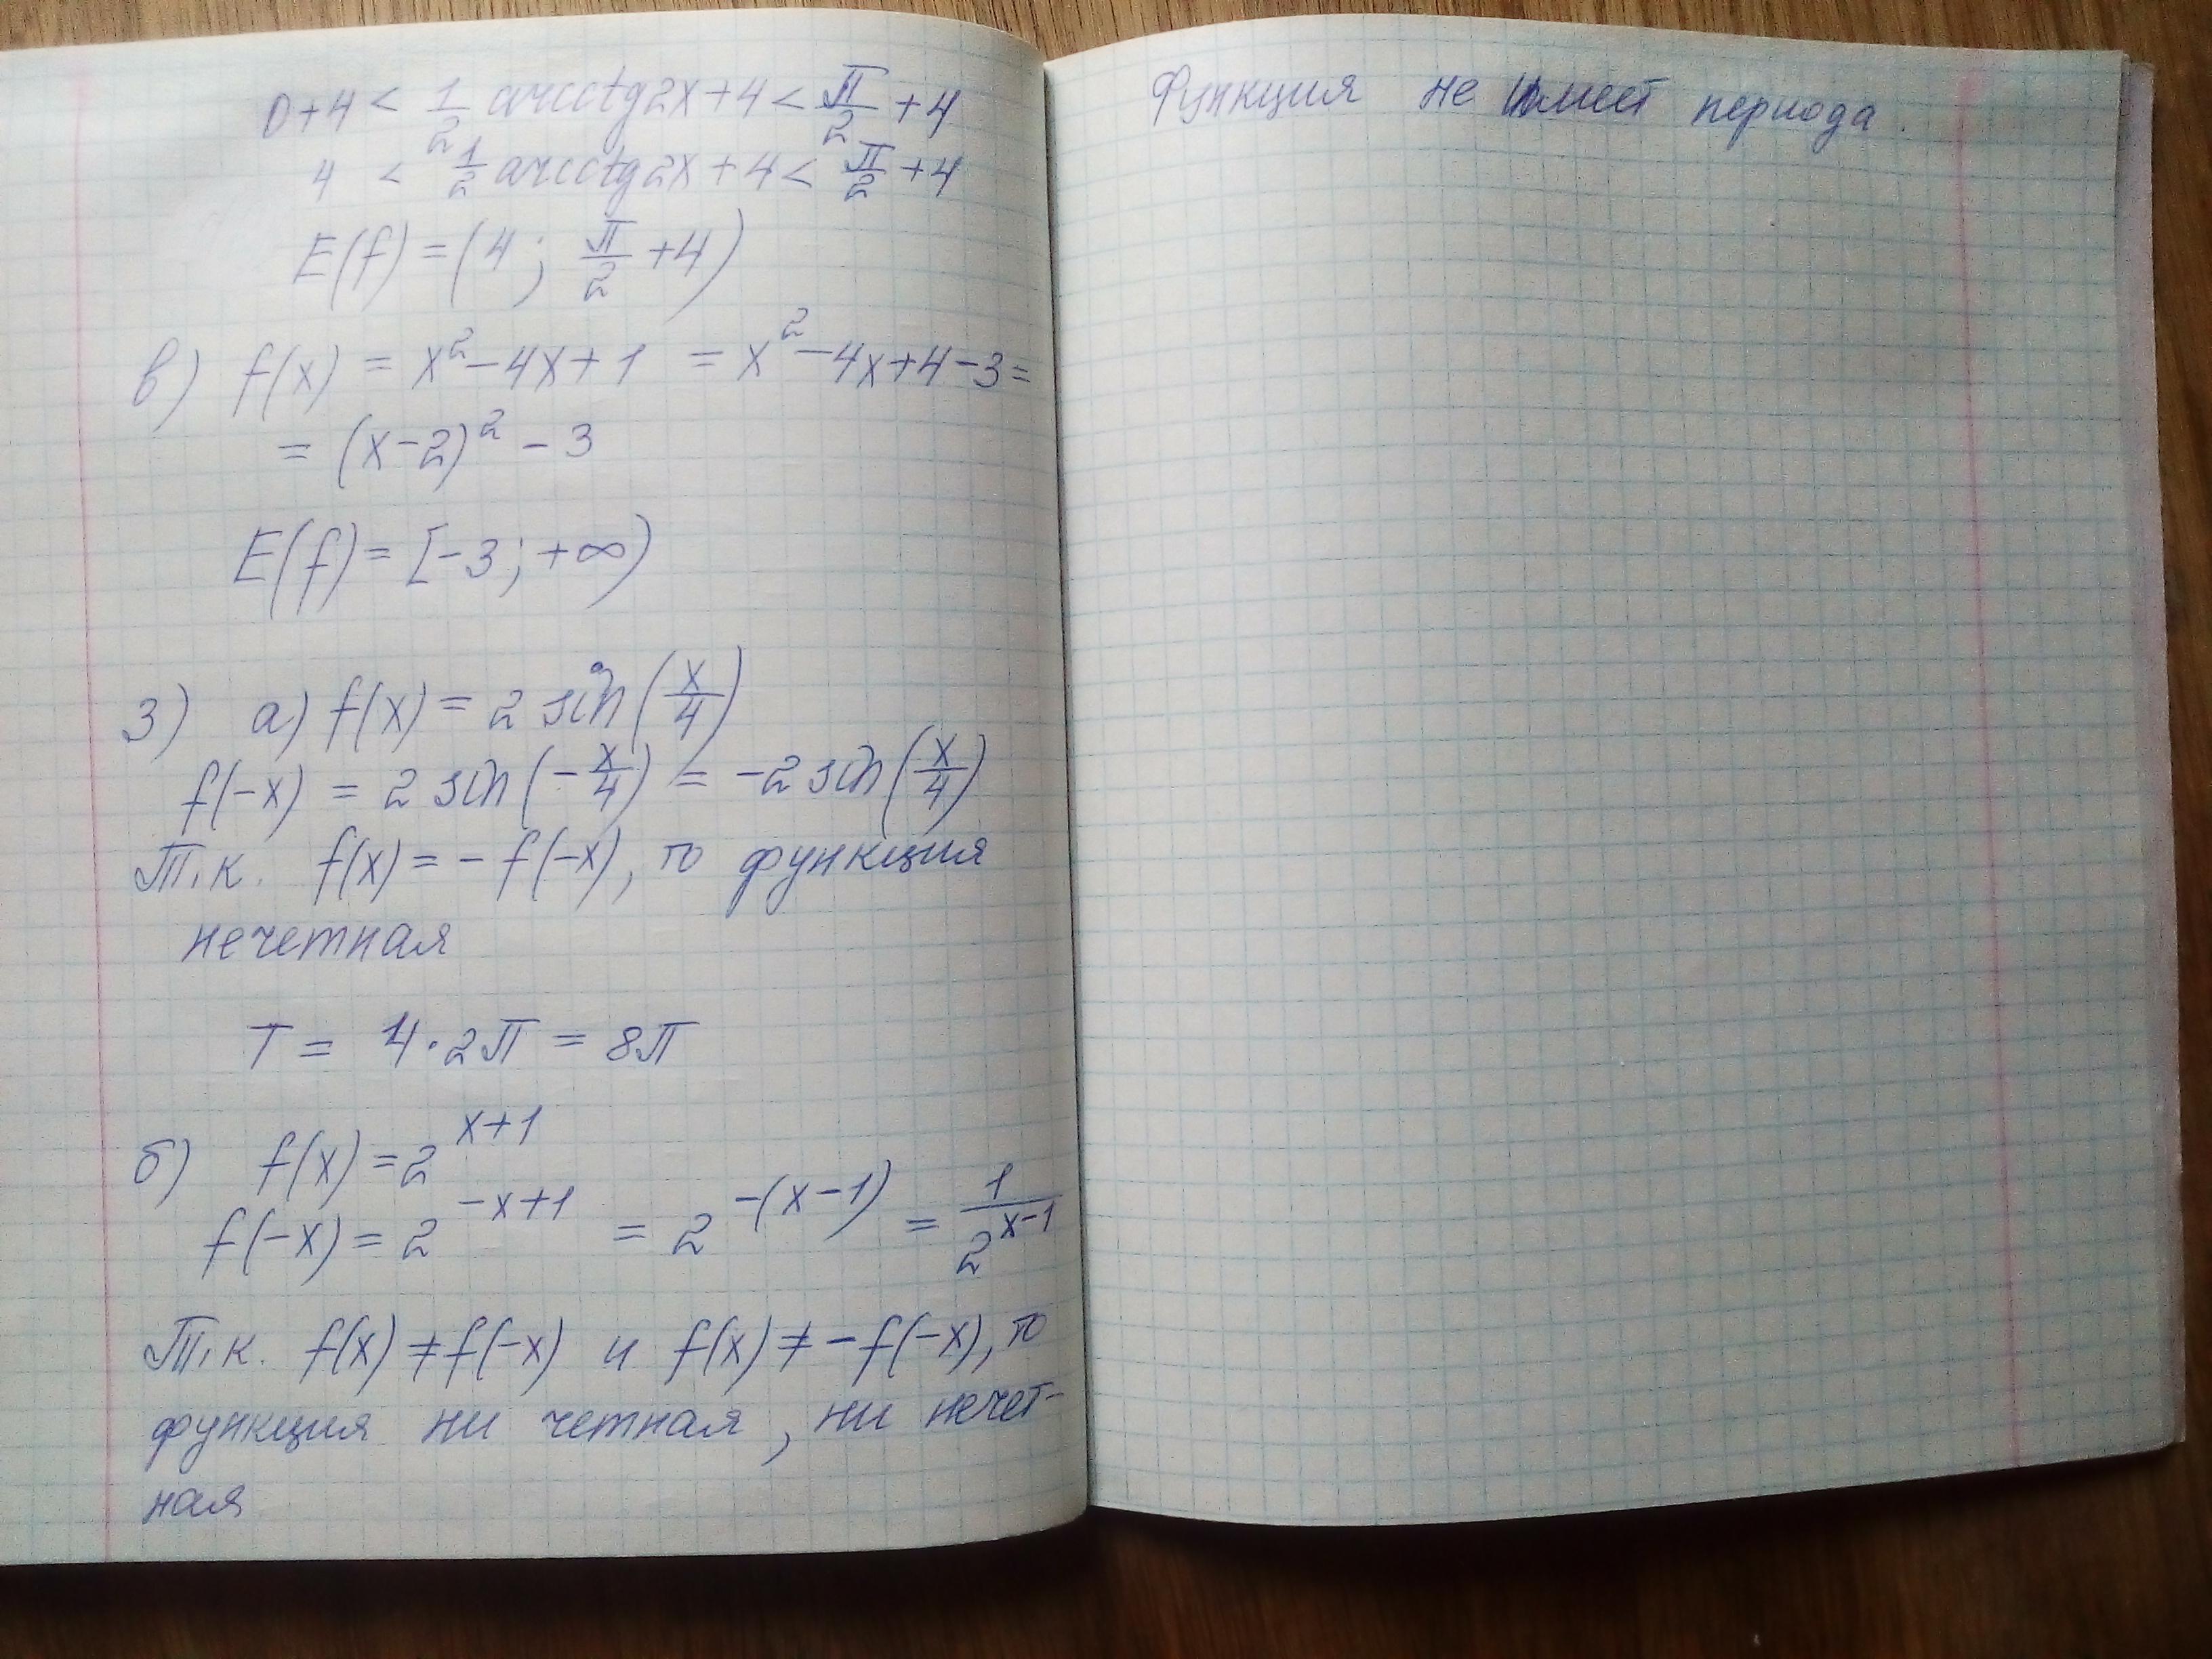 0+4 < 1/2 arcctg2x+4 < π/2 +4
4 < 1/2 arcctg2x+4 < π/2 +4
E(f) = (4; π/2 +4)
в) f(x) = x²-4x+1 = x²-4x+4-3=
= (x-2)² - 3
E(f) = [-3; +∞)
3) а) f(x) = 2 sin(x/4)
f(-x) = 2 sin(-x/4) = -2 sin(x/4)
Т.к. f(x) = - f(-x), то функция
нечетная
T = 4·2π = 8π
б) f(x) = 2^(x+1)
f(-x) = 2^(-x+1) = 2^(-(x-1)) = 1/2^(x-1)
Т.к. f(x) ≠ f(-x) и f(x) ≠ -f(-x), то
функция ни четная, ни нечет-
ная
Функция не имеет периода.